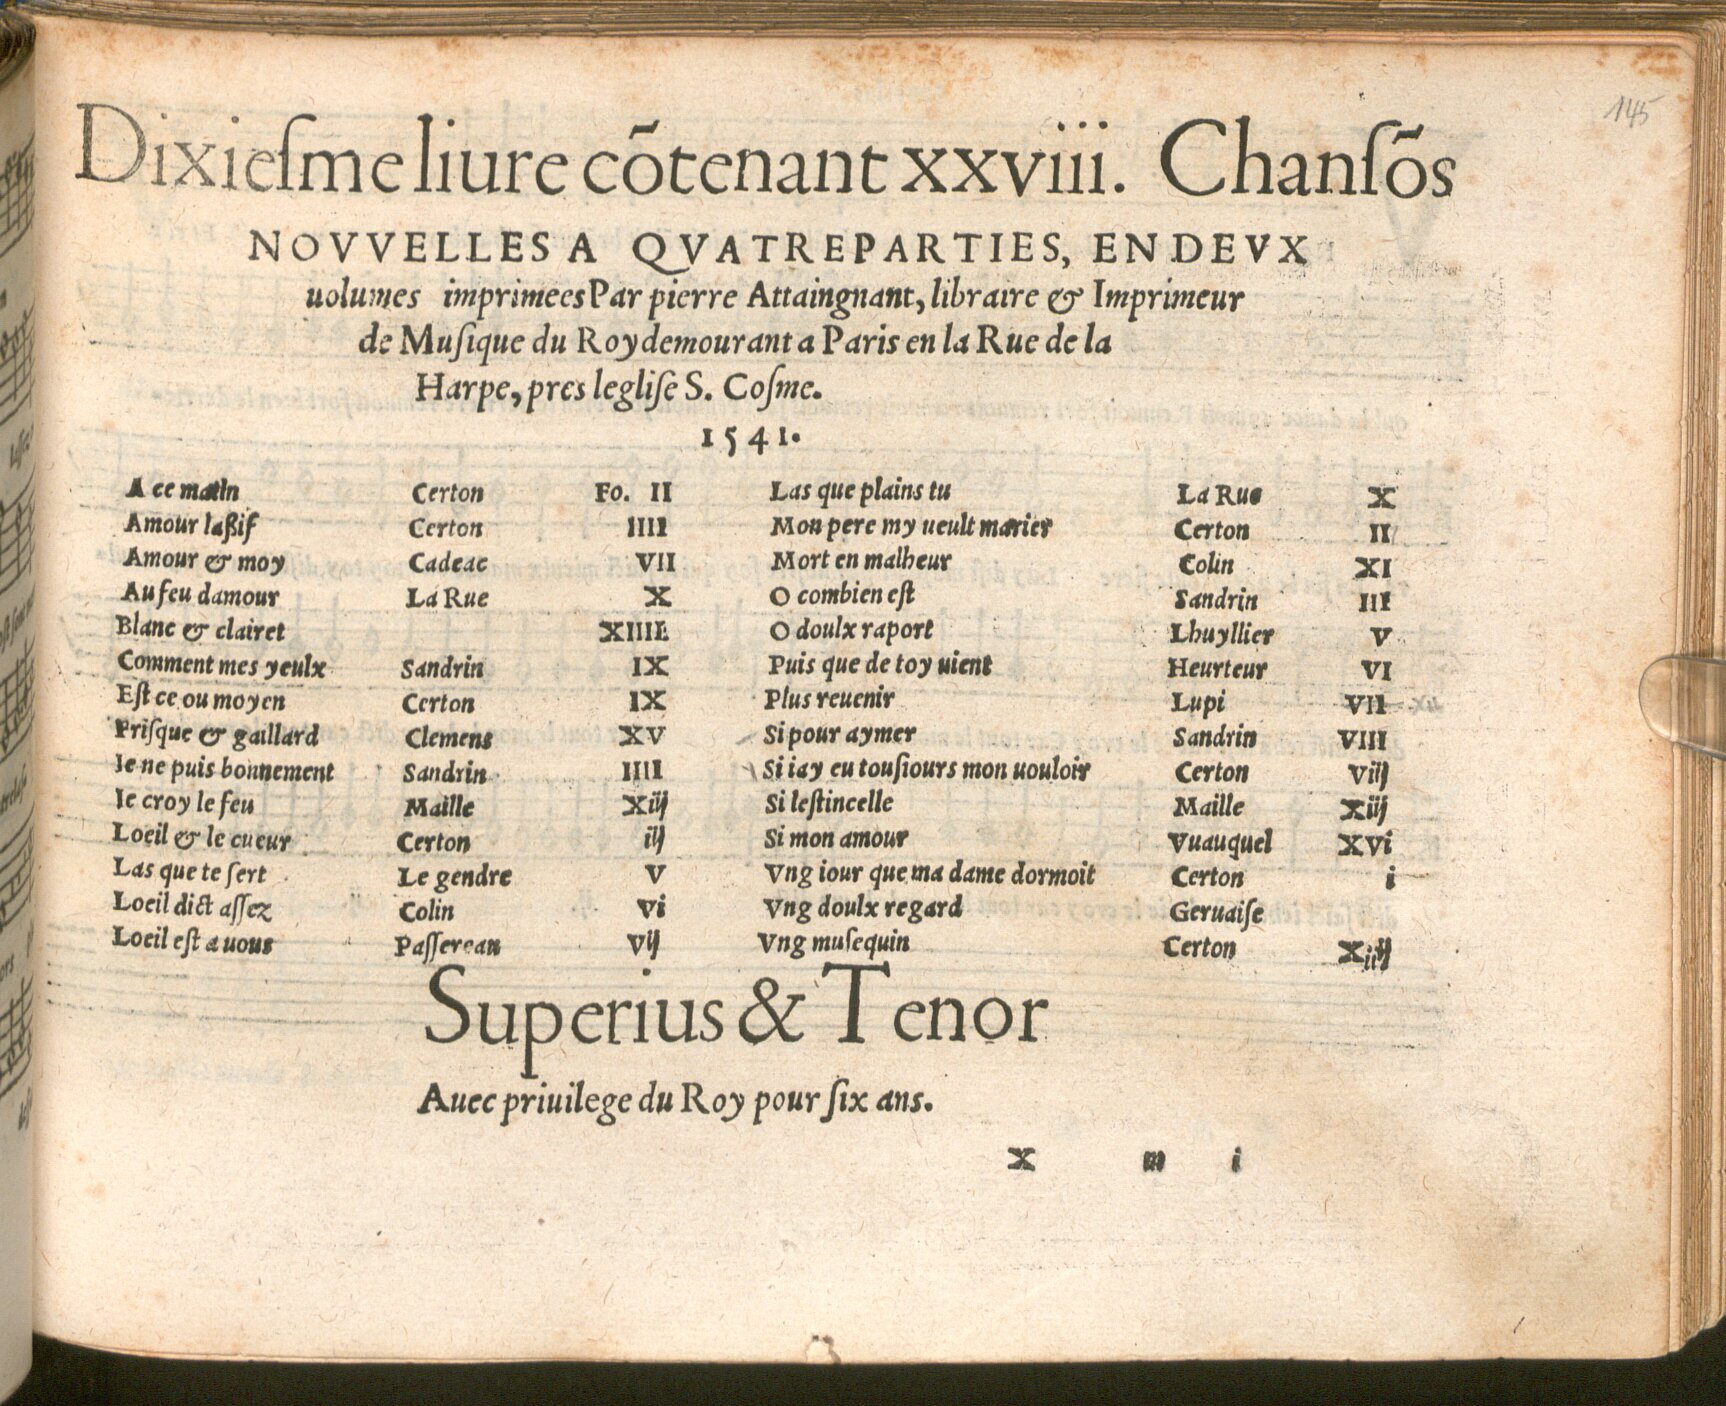 145
Dixiesme liure cõtenant xxviii. Chansõs
NOVVELLES A QVATRE PARTIES, EN DEVX
uolumes imprimees Par pierre Attaingnant, libraire & Imprimeur
de Musique du Roy demourant a Paris en la Rue de la
Harpe, pres leglise S. Cosme.
1541.
A ce matin Certon Fo. II
Amour laßif Certon IIII
Amour & moy Cadeac VII
Au feu damour La Rue X
Blanc & clairet XIIII
Comment mes yeulx Sandrin IX
Est ce ou moyen Certon IX
Frisque & gaillard Clemens XV
Ie ne puis bonnement Sandrin IIII
Ie croy le feu Maille Xiij
Loeil & le cueur Certon iij
Las que te sert Le gendre V
Loeil dict assez Colin Vi
Loeil est a uous Passereau Vij
Las que plains tu La Rue X
Mon pere my ueult marier Certon II
Mort en malheur Colin XI
O combien est Sandrin III
O doulx raport Lhuyllier V
Puis que de toy uient Heurteur VI
Plus reuenir Lupi VII
Si pour aymer Sandrin VIII
Si iay eu tousiours mon uouloir Certon Viij
Si lestincelle Maille Xiij
Si mon amour Vuauquel XVi
Vng iour que ma dame dormoit Certon i
Vng doulx regard Geruaise
Vng musequin Certon
Superius & Tenor
Auec priuilege du Roy pour six ans.
X m i